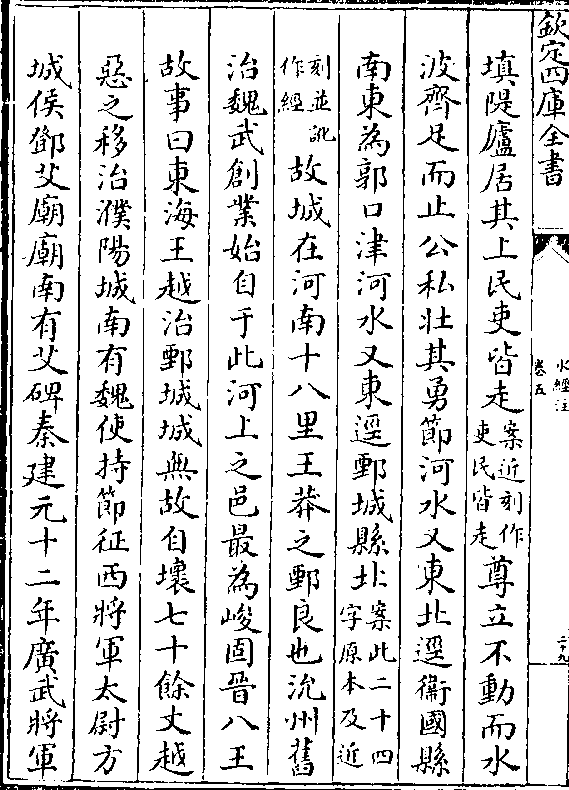 欽定四庫全書
水經注
卷五
二十九
填隄廬居其上民吏皆走案近刻作吏民皆走尊立不動而水
波齊足而止公私壯其勇節河水又東北逕衞國縣
南東為郭口津河水又東逕鄄城縣北案此二十四字原本及近
刻並訛作經故城在河南十八里王莽之鄄良也沇州舊
治魏武創業始自于此河上之邑最為峻固晉八王
故事曰東海王越治鄄城城無故自壊七十餘丈越
惡之移治濮陽城南有魏使持節征西將軍太尉方
城侯鄧艾廟廟南有艾碑秦建元十二年廣武將軍